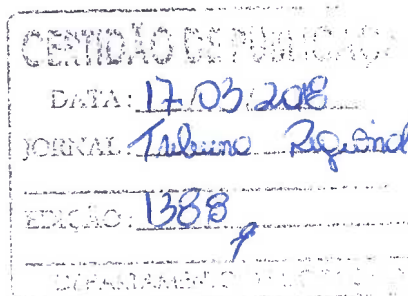 CERTIDÃO DE PUBLICAÇÃO
DATA: 17/03/2018
JORNAL Tribuna Regional
EDIÇÃO: 1388